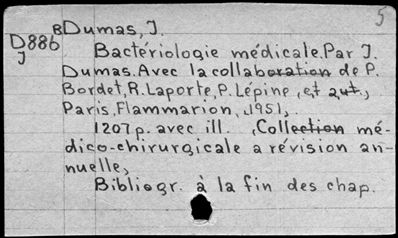 5
BDumas, J.
D886
J
Bactériologie médicale. Par J.
Dumas. Avec la collaboration de P.
Bordet, R. Laporte, P. Lépine, et aut.,
Paris, Flammarion, 1951,
1207 p. avec ill. , Collection mé-
dico-chirurgicale a révision an-
nuelle,
Bibliogr. à la fin des chap.